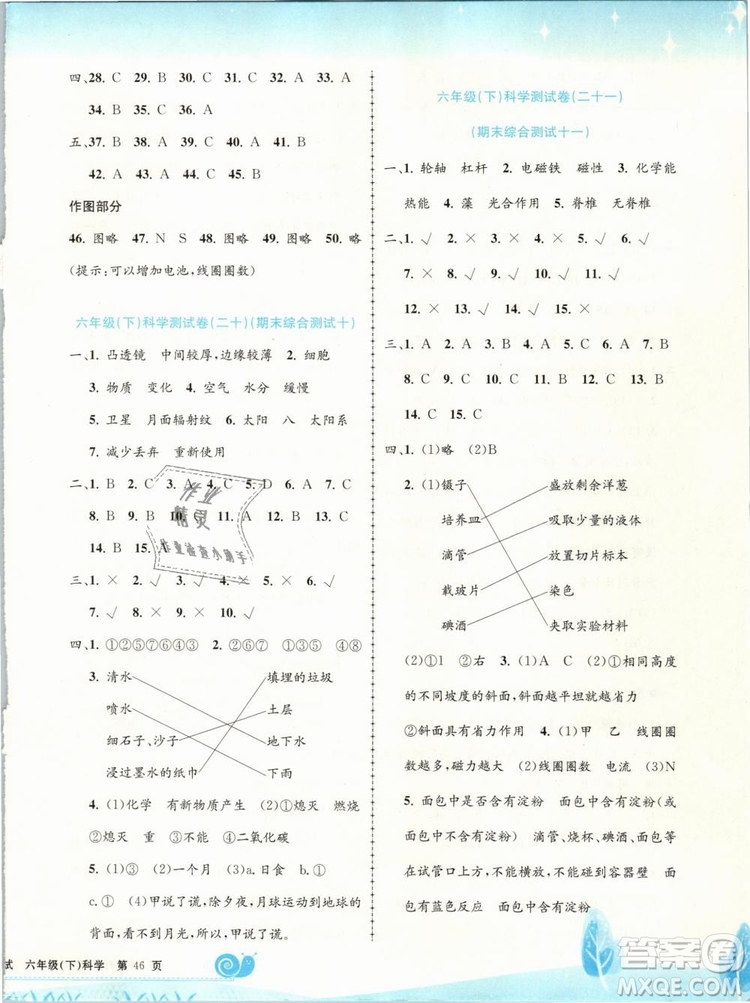 四、28. C 29. B 30. C 31. C 32. A 33. A
34. B 35. C 36. A
五、37. B 38. C 39. A 40. C 41. B
42. A 43. A 44. C 45. B
作图部分
46. 图略 47. N S 48. 图略 49. 图略 50. 略
(提示:可以增加电池,线圈圈数)
六年级(下)科学测试卷(二十)(期末综合测试十)
一、1. 凸透镜 中间较厚,边缘较薄 2. 细胞
3. 物质 变化 4. 空气 水分 缓慢
5. 卫星 月面辐射纹 6. 太阳 八 太阳系
7. 减少丢弃 重新使用
二、1. B 2. C 3. A 4. C 5. D 6. A 7. C
8. B 9. C 10. C 11. A 12. B 13. A
14. B 15. A
三、1. × 2. √ 3. √ 4. √ 5. × 6. √
7. √ 8. × 9. √ 10. √
四、1. ①②⑤⑥⑦ 2. ②⑥⑦ ①③④⑤⑧
3. 清水 填埋的垃圾
喷水 土层
细石子、沙子 地下水
浸过墨水的纸巾 下雨
4. (1)化学 有新物质产生 (2)①熄灭 燃烧
②熄灭 重 ③不能 ④二氧化碳
5. (1)③ (2)一个月 (3)a. 日食 b. ①
c. ① (4)甲说了谎,除夕夜,月球运动到地球的
背面,看不到月光,所以甲说了谎。
式 六年级(下)科学 第 46 页
六年级(下)科学测试卷(二十一)
(期末综合测试十一)
一、1. 轮轴 杠杆 2. 电磁铁 磁性 3. 化学能
热能 4. 藻 光合作用 5. 脊椎 无脊椎
二、1. √ 2. √ 3. × 4. √ 5. × 6. √
7. × 8. × 9. √ 10. √ 11. × 12. √
13. × 14. √ 15. ×
三、1. A 2. A 3. C 4. C 5. A 6. A 7. C
8. B 9. B 10. B 11. A 12. B 13. B
14. C 15. C
四、1. (1)略 (2)B
2. (1)镊子 盛放剩余洋葱
培养皿 吸取少量的液体
滴管 放置切片标本
载玻片 染色
碘酒 夹取实验材料
(2)①1 ②右 3. (1)A C (2)①相同高度
的不同坡度的斜面,斜面越平坦就越省力
②斜面具有省力作用 4. (1)甲 乙 线圈圈
数越多,磁力越大 (2)线圈圈数 电流 (3)N
5. 面包中是否含有淀粉 面包中含有淀粉
面包中不含有淀粉 滴管、烧杯、碘酒、面包等
在试管口上方,不能横放,不能碰到容器壁 面
包有蓝色反应 面包中含有淀粉
作业
精灵
作业检查小助手
答案圈
MXQE.COM